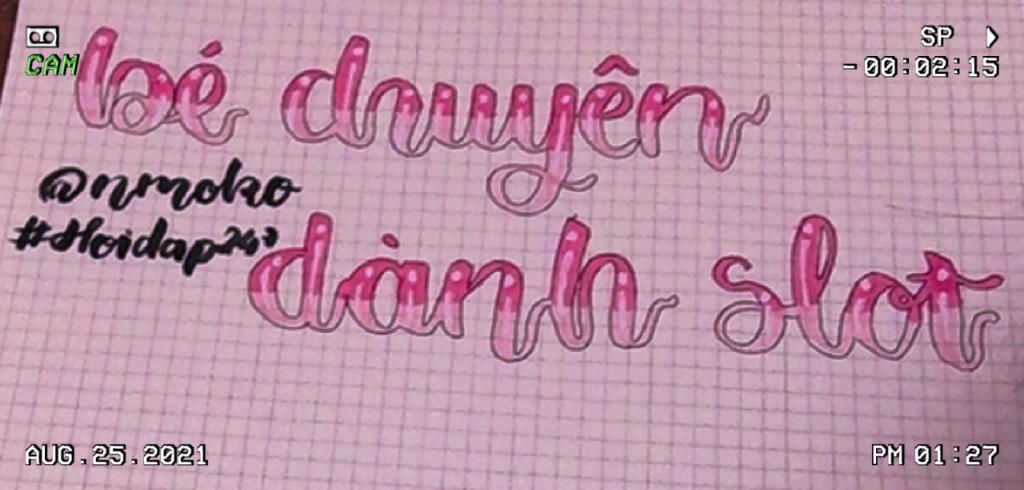 CAM
SP
-00:02:15
bé duyên
@nmoko
#Hoidap247
dành slot
AUG.25.2021
PM 01:27